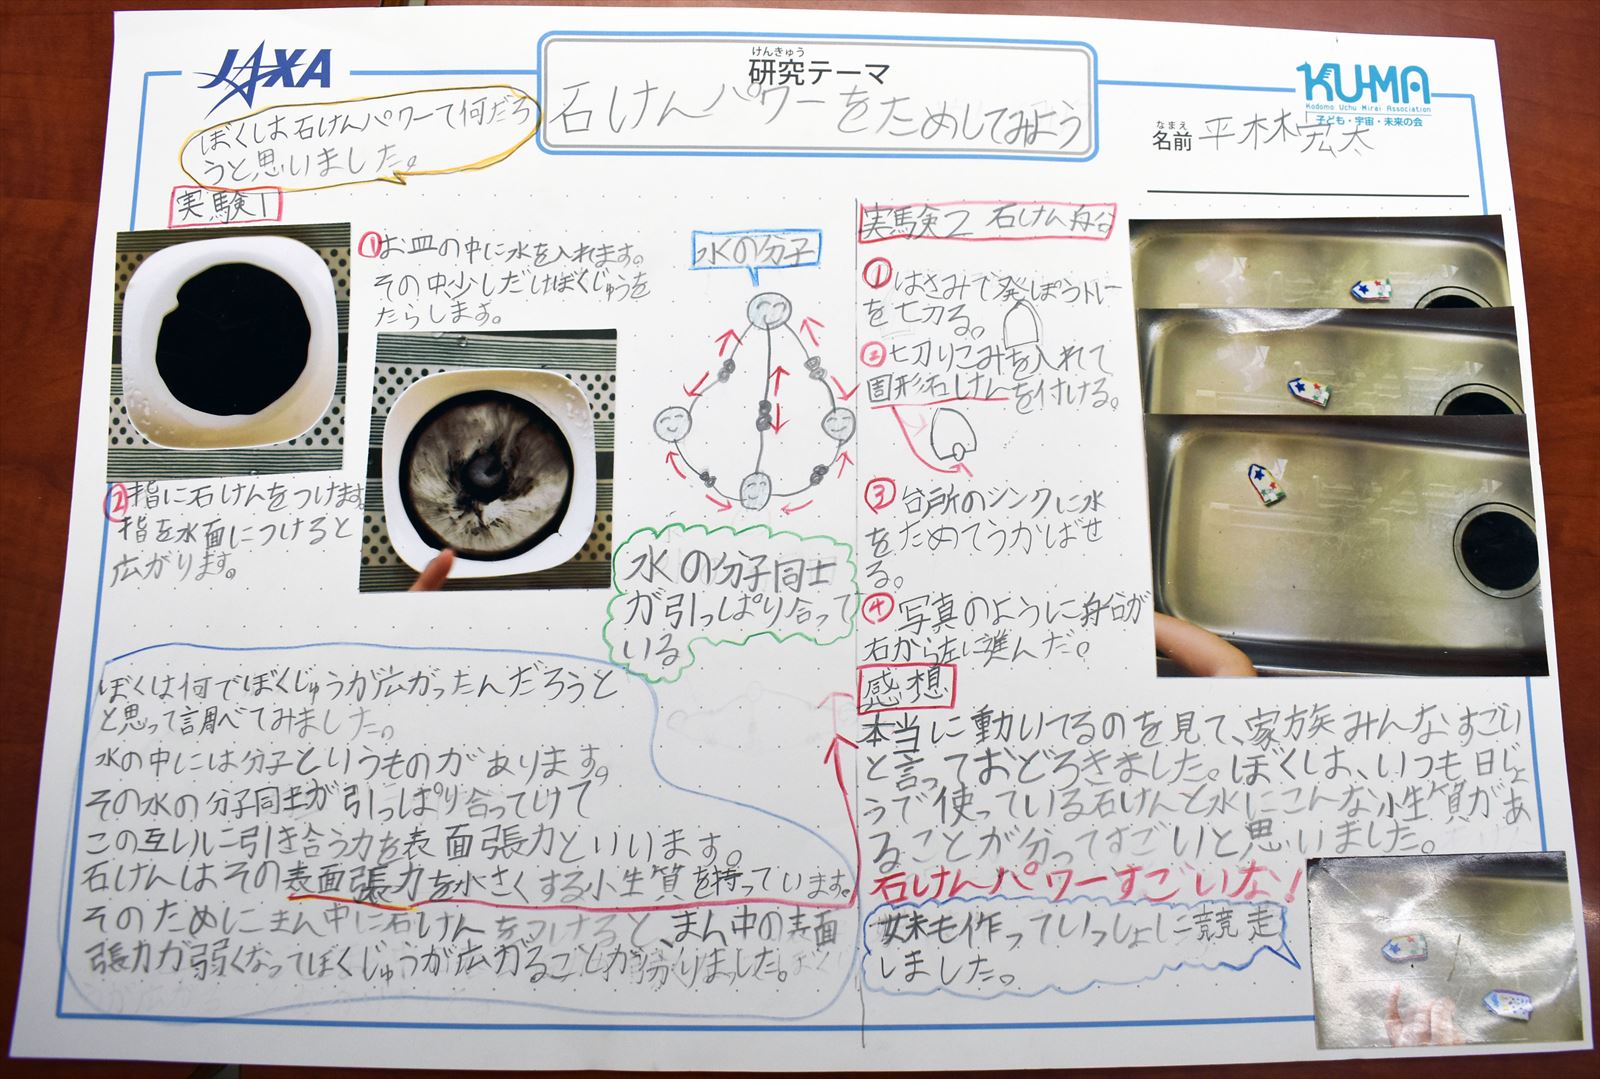 JAXA
けんきゅう
研究テーマ
石けんパワーをためしてみよう
KU-MA
Kodomo Uchu Mirai Association
子ども・宇宙・未来の会
なまえ
名前 平林宏太
ぼくは石けんパワーて何だろ
うと思いました。
実験1
①お皿の中に水を入れます。
その中少しだけぼくじゅうを
たらします。
②指に石けんをつけます
指を水面につけると
広がります。
水の分子
水の分子同士
が引っぱり合って
いる
ぼくは何でぼくじゅうが広がったんだろうと
と思って調べてみました。
水の中には分子というものがあります。
その水の分子同士が引っぱり合ってけて
この互いに引き合う力を表面張力といいます。
石けんはその表面張力を小さくする性質を持っています。
そのためにまん中に石けんをつけると、まん中の表面
張力が弱くなってぼくじゅうが広がることが分りました。
実験2 石けん船
①はさみで発ぽうトレー
を切る。
②切りこみを入れて
固形石けんを付ける。
③台所のシンクに水
をためてうかばせ
る。
④写真のように船が
右から左に進んだ。
感想
本当に動いてるのを見て、家族みんなすごい
と言っておどろきました。ぼくは、いつも日じょ
うで使っている石けんと水にこんな性質があ
ることが分ってすごいと思いました。
石けんパワーすごいな!
妹も作っていっしょに競走
しました。